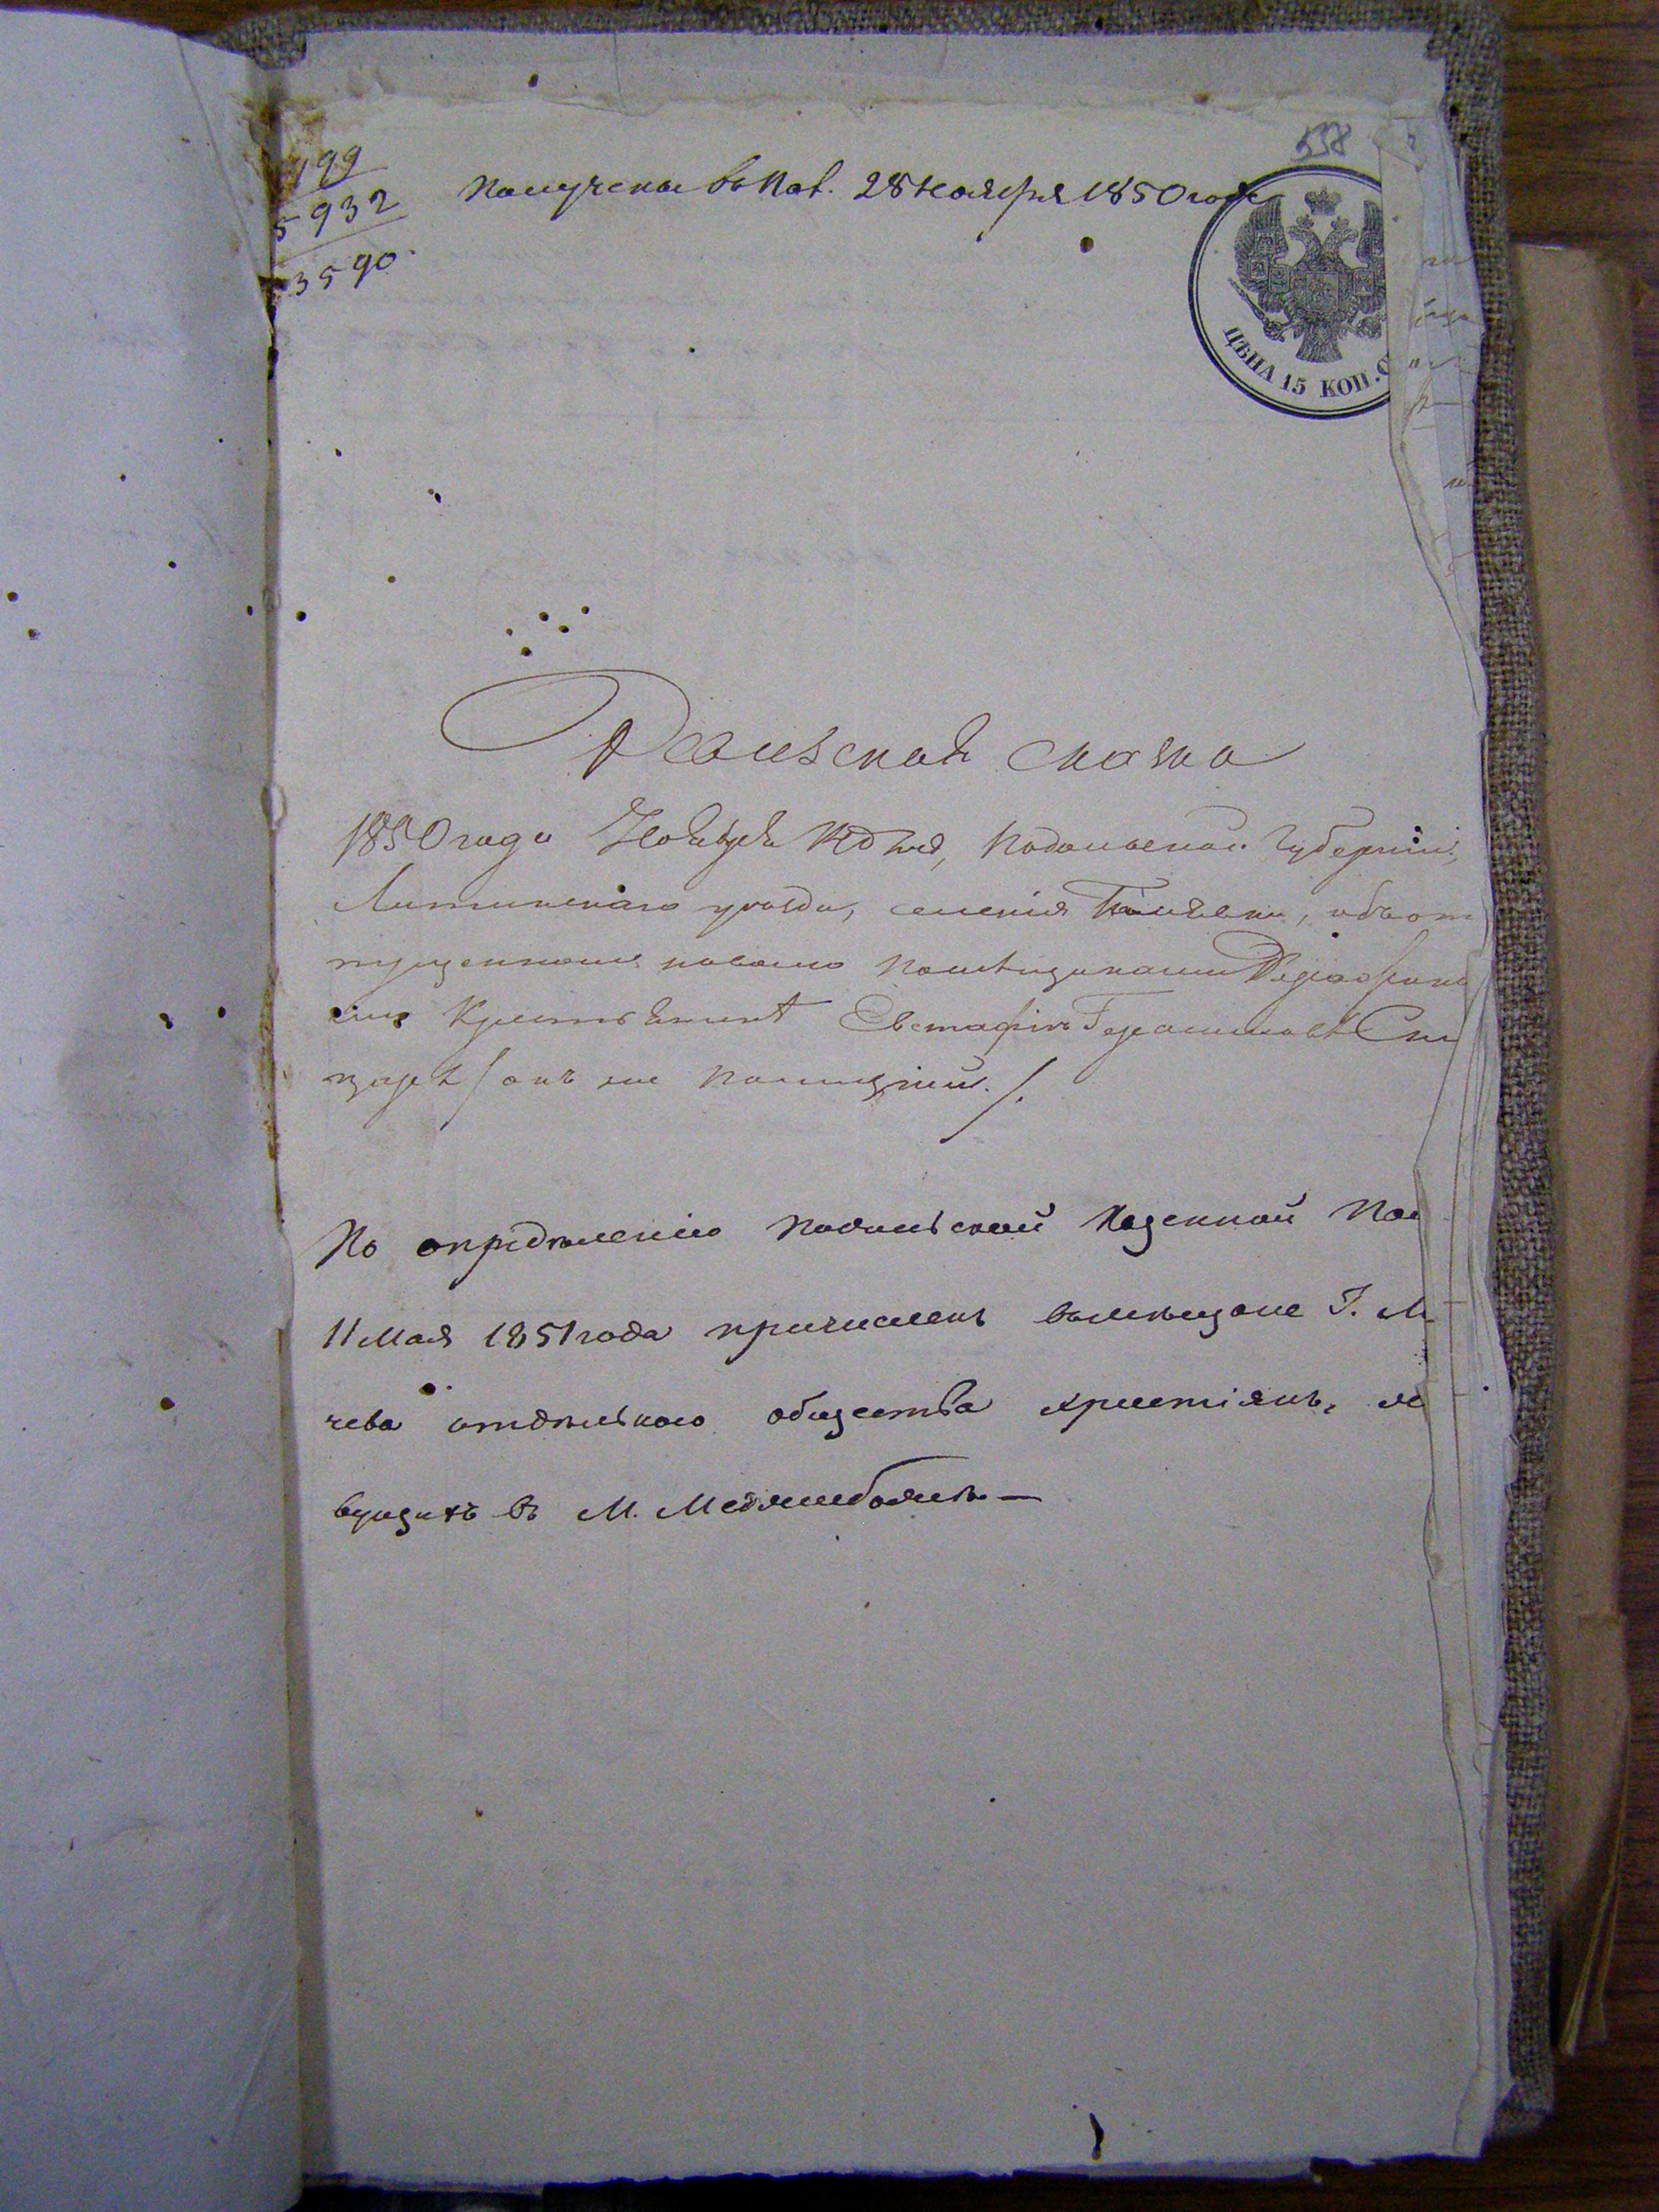 558
199
5932
3590
Получена въ Пов. 28 Ноября 1850 года
ЦѢНА 15 КОП. С
Ревизская сказка
1850 года Ноября дня, Подольской Губерніи,
Литинскаго уѣзда, селенія объ от
пущенномъ на волю помѣщикомъ
Крестьянинѣ Евстафіѣ Герасимовѣ Сли
царѣ / онъ же
По опредѣленію Подольской Казенной Пал
11 Мая 1851 года причисленъ въ мѣщане Г. Л
чева отдѣльнаго общества христіянъ, жи
вущихъ въ М. Меджибожѣ —